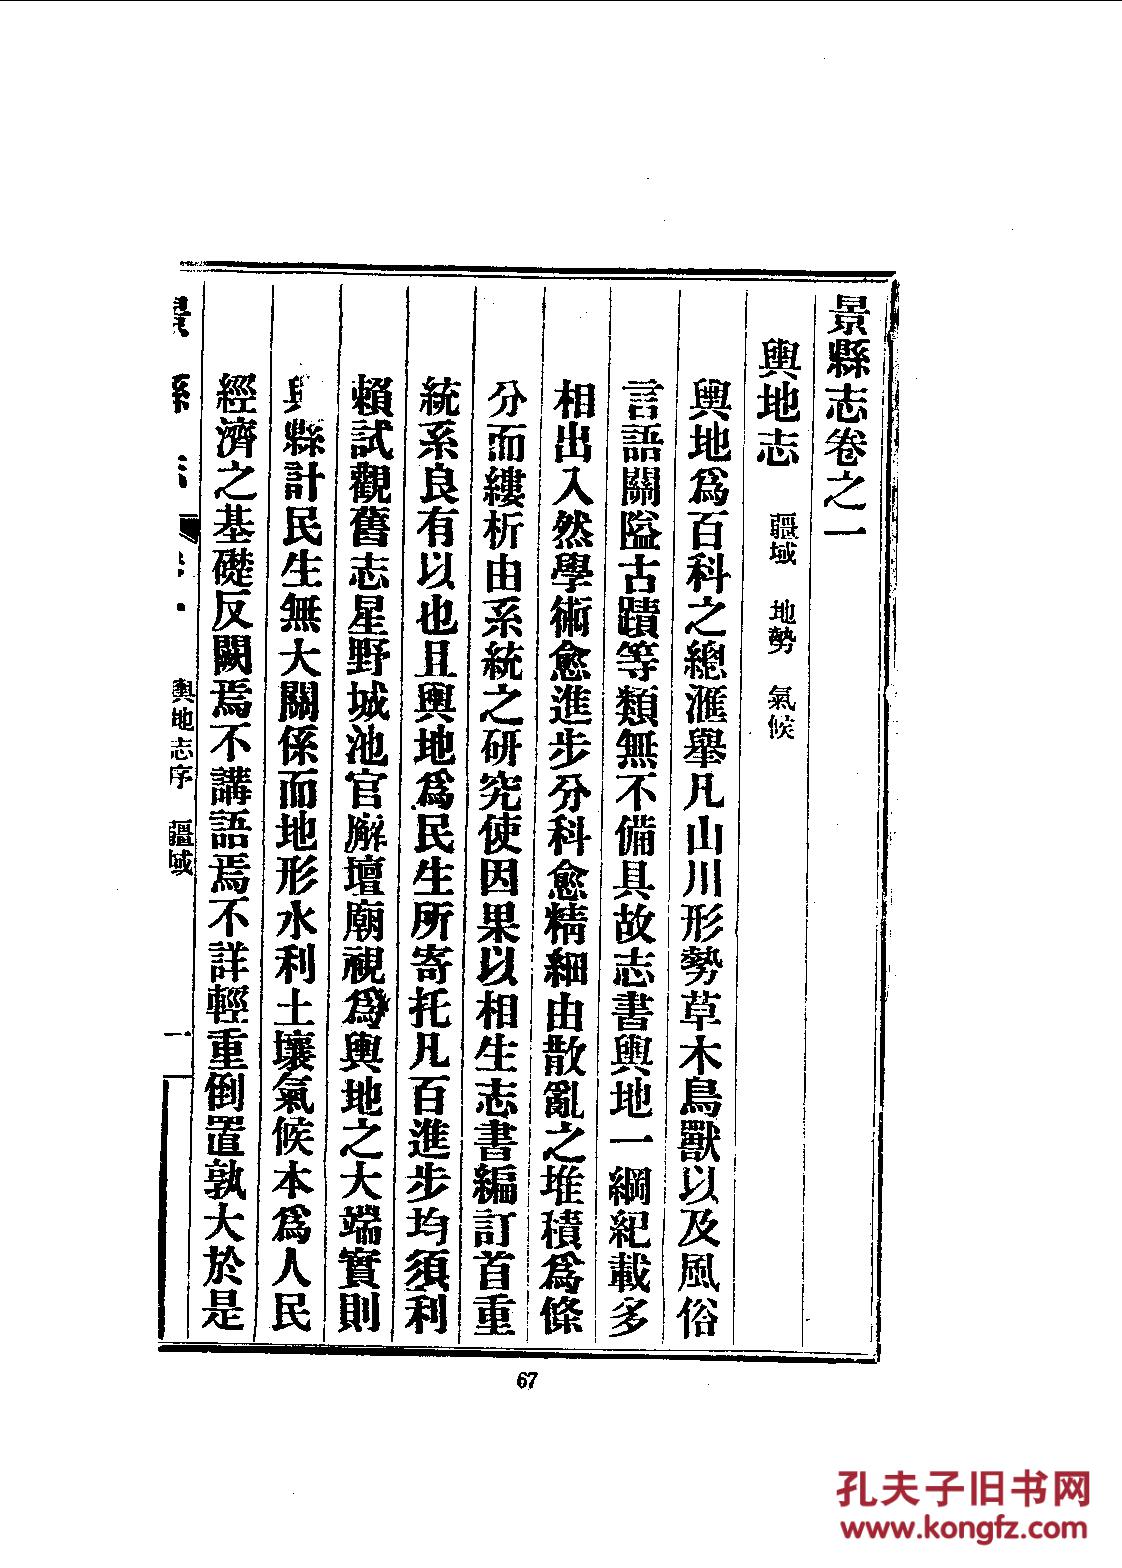 景縣志卷之一
輿地志 疆域 地勢 氣候
輿地爲百科之總滙舉凡山川形勢草木鳥獸以及風俗
言語關隘古蹟等類無不備具故志書輿地一綱紀載多
相出入然學術愈進步分科愈精細由散亂之堆積爲條
分而縷析由系統之研究使因果以相生志書編訂首重
統系良有以也且輿地爲民生所寄托凡百進步均須利
賴試觀舊志星野城池官廨壇廟視爲輿地之大端實則
與縣計民生無大關係而地形水利土壤氣候本爲人民
經濟之基礎反闕焉不講語焉不詳輕重倒置孰大於是
景縣志 輿地志序 疆域 一
67
孔夫子旧书网
www.kongfz.com